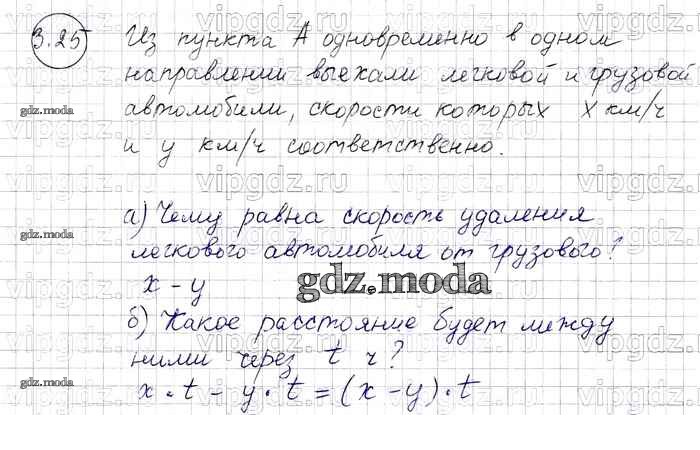 3.25 Из пункта А одновременно в одном
направлении выехали легковой и грузовой
gdz.moda автомобили, скорости которых x км/ч
и y км/ч соответственно.
а) Чему равна скорость удаления
gdz.moda легкового автомобиля от грузового?
x - y gdz.moda
б) Какое расстояние будет между
ними через t ч?
gdz.moda x · t - y · t = (x - y) · t
vipgdz.ru vipgdz.ru vipgdz.ru vipgdz.ru